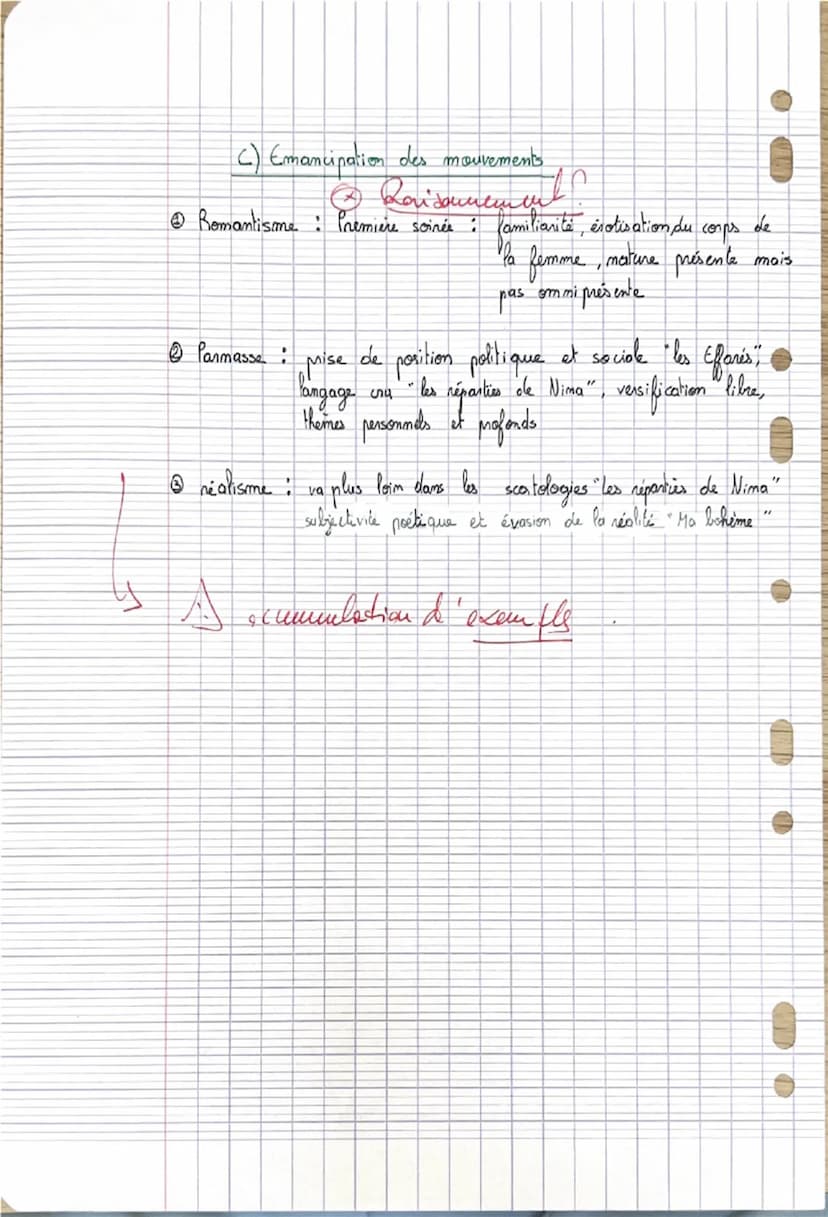 C) Emancipation des mouvements
+ Raisonnement ?
① Romantisme : Première soirée : familiarité, érotisation du corps de
la femme, nature présente mais
pas omniprésente
② Parnasse : prise de position politique et sociale "les Effarés",
langage cru "les réparties de Nina", versification libre,
thèmes personnels et profonds
③ réalisme : va plus loin dans les scatologies "Les réparties de Nina"
subjectivité poétique et évasion de la réalité "Ma bohème"
⚠ accumulation d'exemples